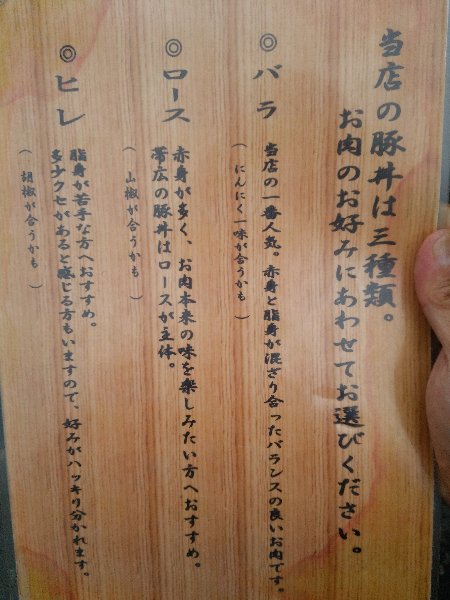 当店の豚丼は三種類。
お肉のお好みにあわせてお選びください。
◎ バラ
当店の一番人気。赤身と脂身が混ざり合ったバランスの良いお肉です。
（にんにく一味が合うかも）
◎ ロース
赤身が多く、お肉本来の味を楽しみたい方へおすすめ。
帯広の豚丼はロースが主体。
（山椒が合うかも）
◎ ヒレ
脂身が苦手な方へおすすめ。
多少クセがあると感じる方もいますので、好みがハッキリ分かれます。
（胡椒が合うかも）